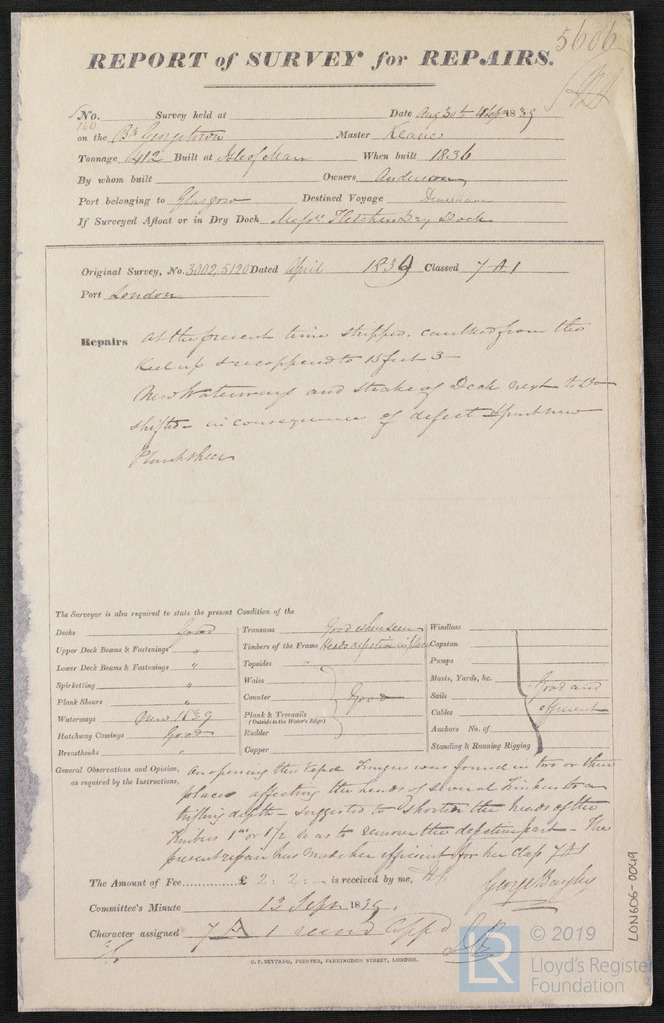 5606
REPORT of SURVEY for REPAIRS.
No. Survey held at Date Augt 30th 1839
140
on the Bk Georgetown Master Keane
Tonnage 412 Built at Isle of Man When built 1836
By whom built Owners Anderson
Port belonging to Glasgow Destined Voyage Demerara
If Surveyed Afloat or in Dry Dock Messrs Fletchers Dry Dock
Original Survey, No. 3002, 5120 Dated April 1839 Classed 7 A 1
Port London
Repairs At the present time stripped, caulked from the
Keel up & recoppered to 15 feet 3
New Waterways and strake of Deck next to Do
shifted in consequence of defect & part new
Planksheer
The Surveyor is also required to state the present Condition of the
Decks Good
Upper Deck Beams & Fastenings "
Lower Deck Beams & Fastenings "
Spirketting "
Plank Shears "
Waterways New 1839
Hatchway Comings Good
Breasthooks "
Transoms Good when seen
Timbers of the Frame Heads defective in places
Topsides
Wales
Counter Good
Plank & Treenails
(Outside to the Water's Edge)
Rudder
Copper
Windlass
Capstan
Pumps
Masts, Yards, &c. Good and
Sails efficient
Cables
Anchors No. of
Standing & Running Rigging
General Observations and Opinion, On opening the Vessel Fungus was found in two or three
as required by the Instructions, places affecting the heads of several Timbers to a
trifling depth suggested to shorten the heads of the
Timbers 1 in or 1 1/2 so as to remove the defective part. The
present repair has made her efficient for her class 7 A 1
The Amount of Fee £ 2. 2. — is received by me,
George Bayley
Committee's Minute 13 Sepr 1839.
Character assigned 7 A 1 Appd
C. F. SEYFANG, PRINTER, FARRINGDON STREET, LONDON.
LON606-0049
LR © 2019
Lloyd's Register
Foundation